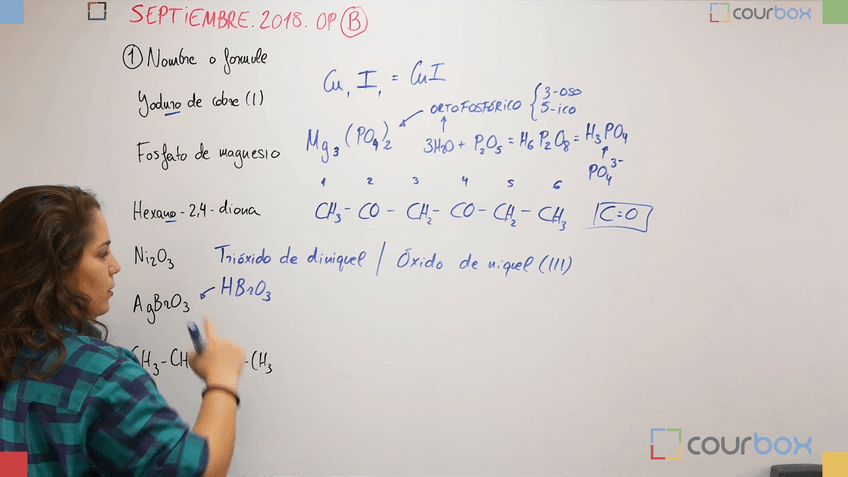 SEPTIEMBRE. 2018. OP B
courbox
1 Nombre o formule
Cu1 I1 = CuI
Yoduro de cobre (I)
ORTOFOSFÓRICO { 3-oso
5-ico
Fosfato de magnesio
Mg3(PO4)2
3H2O + P2O5 = H6P2O8 = H3PO4
PO4 3-
1 2 3 4 5 6
Hexano - 2,4 - diona
CH3 - CO - CH2 - CO - CH2 - CH3
C=O
Ni2O3
Trióxido de diniquel / Óxido de niquel (III)
AgBrO3
HBrO3
CH3-CH
-CH3
courbox